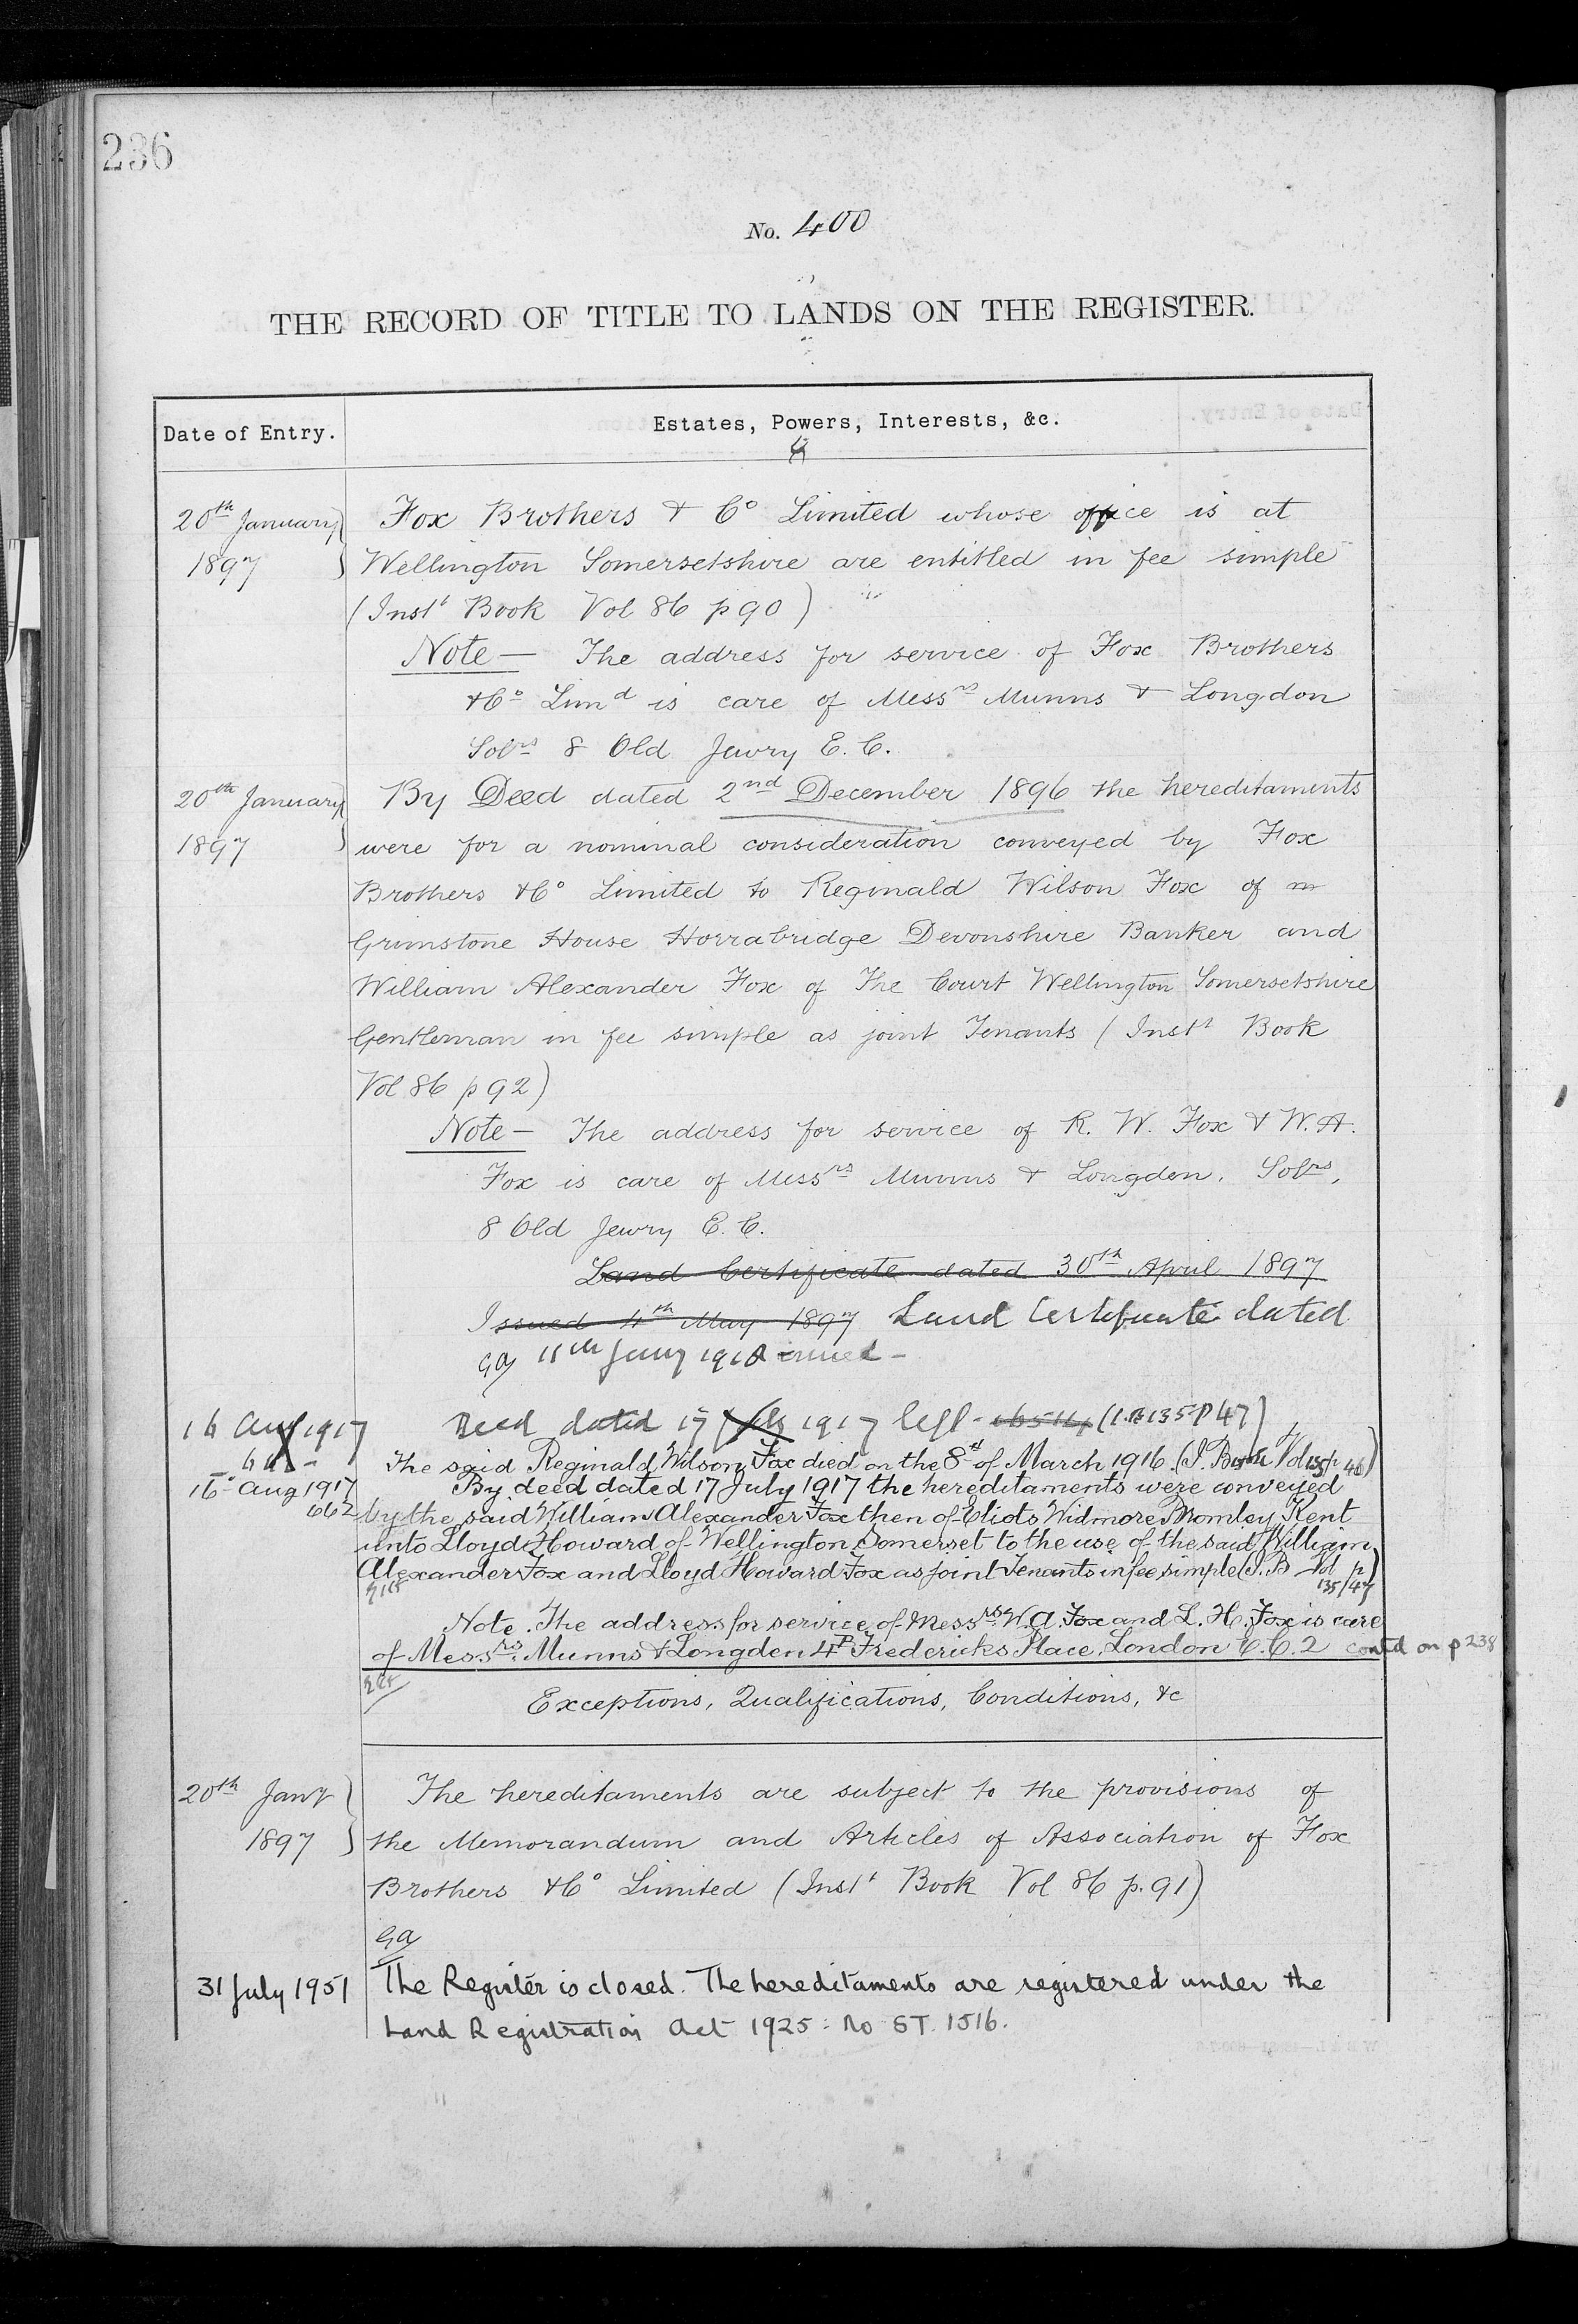 236
No. 400
THE RECORD OF TITLE TO LANDS ON THE REGISTER.
Date of Entry.
Estates, Powers, Interests, &c.
20th January 1897
Fox Brothers & Co Limited whose office is at
Wellington Somersetshire are entitled in fee simple
(Instt Book Vol 86 p 90)
Note — The address for service of Fox Brothers
& Co Limd is care of Messrs Munns & Longdon
Solrs 8 Old Jewry E.C.
20th January 1897
By Deed dated 2nd December 1896 the hereditaments
were for a nominal consideration conveyed by Fox
Brothers & Co Limited to Reginald Wilson Fox of
Grimstone House Horrabridge Devonshire Banker and
William Alexander Fox of The Court Wellington Somersetshire
Gentleman in fee simple as joint Tenants (Instt Book
Vol 86 p 92)
Note — The address for service of R. W. Fox & W. A.
Fox is care of Messrs Munns & Longden. Solrs,
8 Old Jewry E.C.
Land Certificate dated 30th April 1897
Issued 4th May 1897 Land Certificate dated
11th 1918 issued —
16 Aug 1917
Deed dated 17 July 1917 left - (I.B 135 P 47)
The said Reginald Wilson Fox died on the 8th of March 1916. (I. Book Vol 135 p 46)
16 Aug 1917
662
By deed dated 17 July 1917 the hereditaments were conveyed
by the said William Alexander Fox then of Eliots Widmore Bromley Kent
unto Lloyd Howard of Wellington Somerset to the use of the said William
Alexander Fox and Lloyd Howard Fox as joint Tenants in fee simple (I.B Vol p
135/47)
Note. The address for service of Messrs W. A. Fox and L. H. Fox is care
of Messrs. Munns & Longden 4 Fredericks Place, London E.C.2 contd on p 238
Exceptions, Qualifications, Conditions, &c
20th Jany 1897
The hereditaments are subject to the provisions of
the Memorandum and Articles of Association of Fox
Brothers & Co Limited (Instt Book Vol 86 p. 91)
31 July 1951
The Register is closed. The hereditaments are registered under the
Land Registration Act 1925: No ST. 1516.